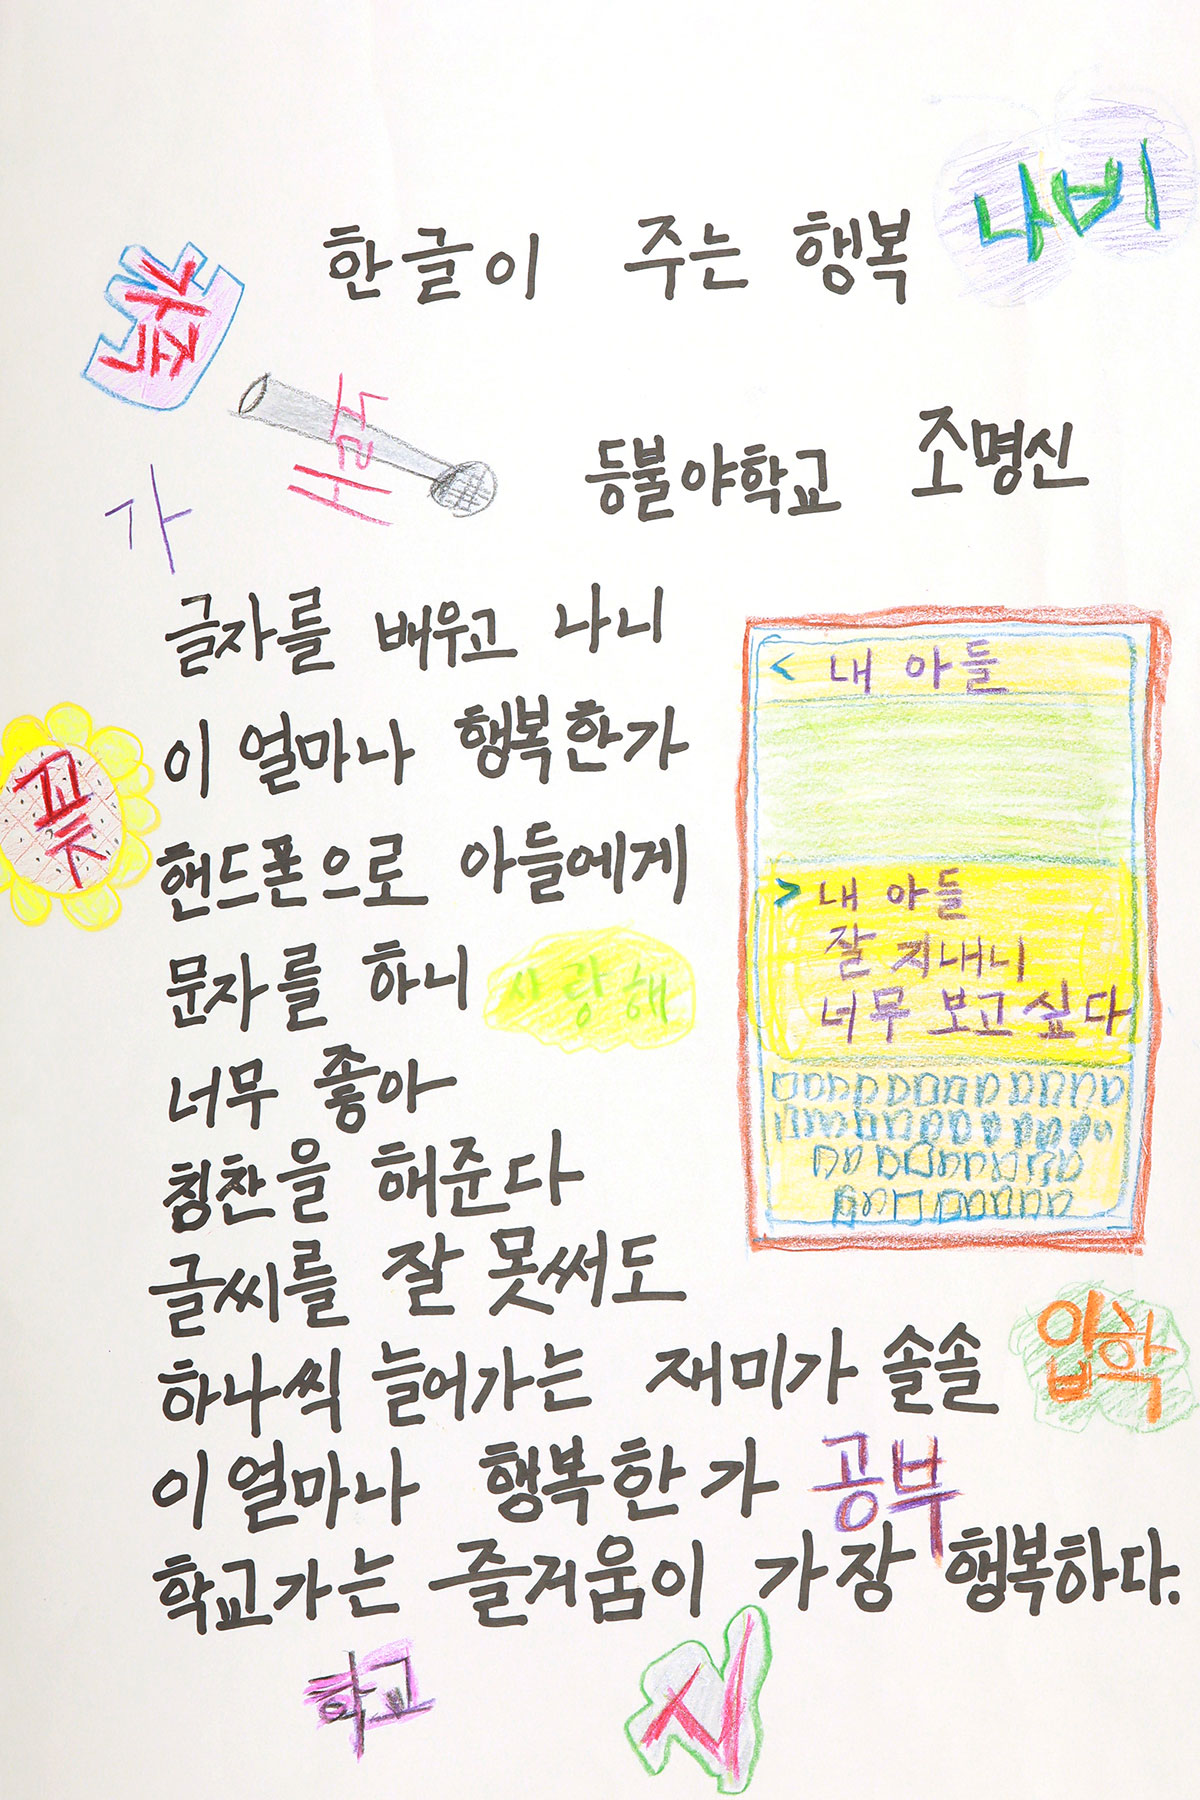 나비
한글이 주는 행복
가족
노래
등불야학교 조명신
가
글자를 배우고 나니
이 얼마나 행복한가
핸드폰으로 아들에게
문자를 하니 사랑해
너무 좋아
칭찬을 해준다
글씨를 잘 못써도
하나씩 늘어가는 재미가 솔솔
이 얼마나 행복한가 공부
학교가는 즐거움이 가장 행복하다.
꽃
< 내 아들
> 내 아들
잘 지내니
너무 보고 싶다
입학
학교
시